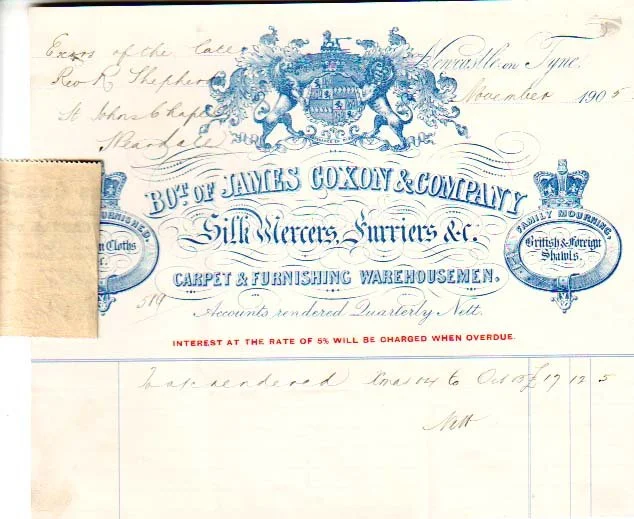 Exors of the late
Rev R Shepherd
St Johns Chapel
Weardale
Newcastle on Tyne
November 1905
BOT. OF JAMES COXON & COMPANY
Silk Mercers, Furriers &c.
CARPET & FURNISHING WAREHOUSEMEN.
FURNISHED.
Cloths
&c.
FAMILY MOURNING,
British & Foreign
Shawls.
519
Accounts rendered Quarterly Nett.
INTEREST AT THE RATE OF 5% WILL BE CHARGED WHEN OVERDUE.
To a/c rendered Xmas 04 to Oct 05 £ 17 12 5
Nett